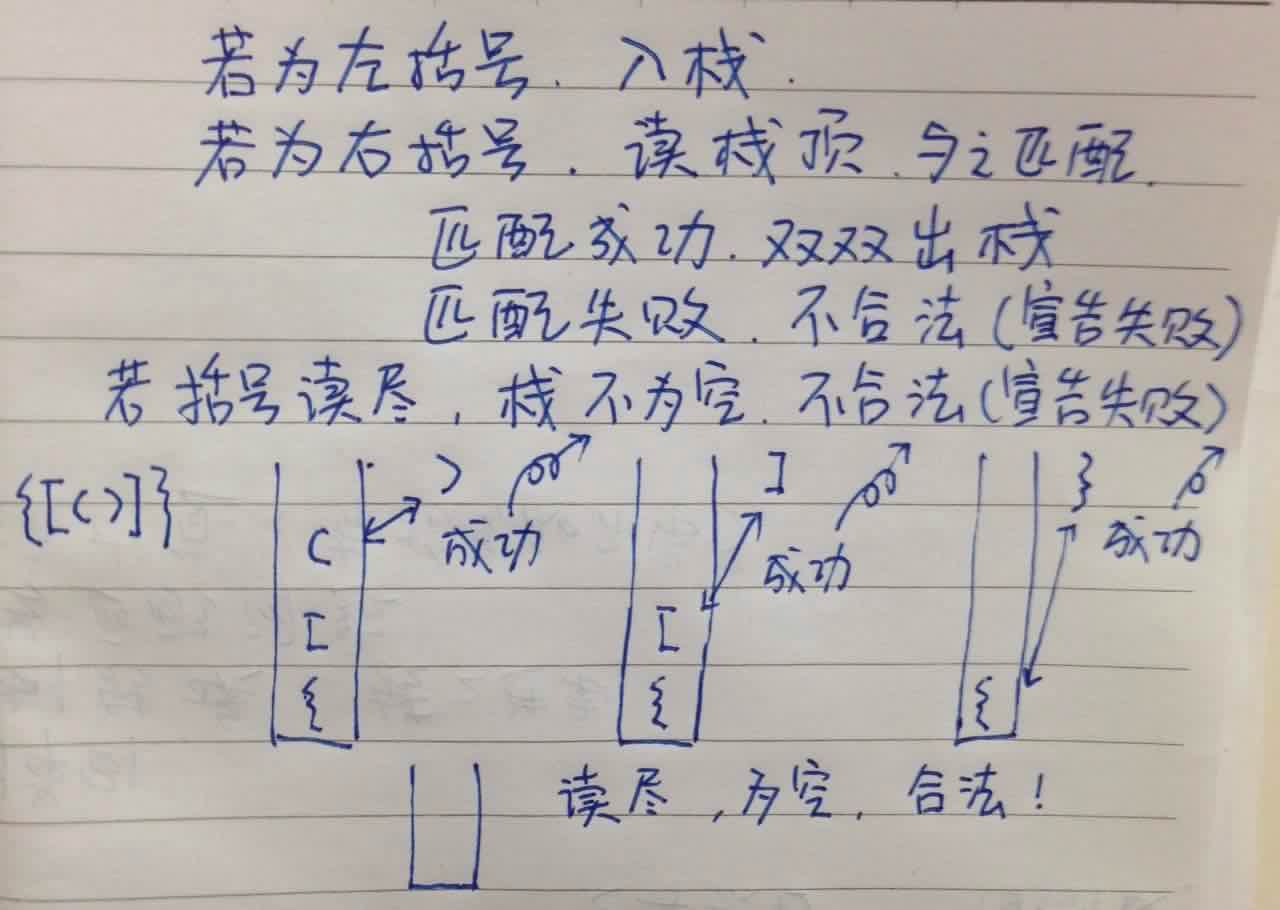 若为左括号.入栈.
若为右括号.读栈顶.与之匹配.
匹配成功.双双出栈
匹配失败.不合法(宣告失败)
若括号读尽,栈不为空.不合法(宣告失败)
{[()]}
(
[
{
)
成功
[
{
]
成功
{
}
成功
读尽,为空,合法!